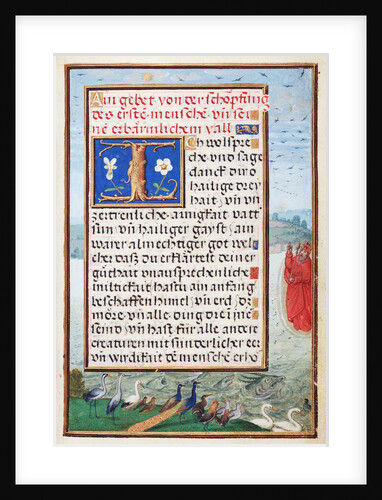 Ain gebet von der schöpfung
des erstē mensche vn̄ sei
nē erbärmlichem vall
Ich wolspre
che vnd sage
danck dir o
hailige drey
hait vn̄ vn
zertrenliche ainigkait vatt
sun vn̄ hailiger gayst ain
warer almechtiger got wel
cher das du erklärtest deiner
guthait vnausprechenliche
miltickait hast im anfang
beschaffen himel vn̄ erd dz
möre vn̄ alle ding dreī we
send vn̄ hast für alle ander
creaturen mit sunderlicher eer
vn̄ wirdikait dē mensche erho